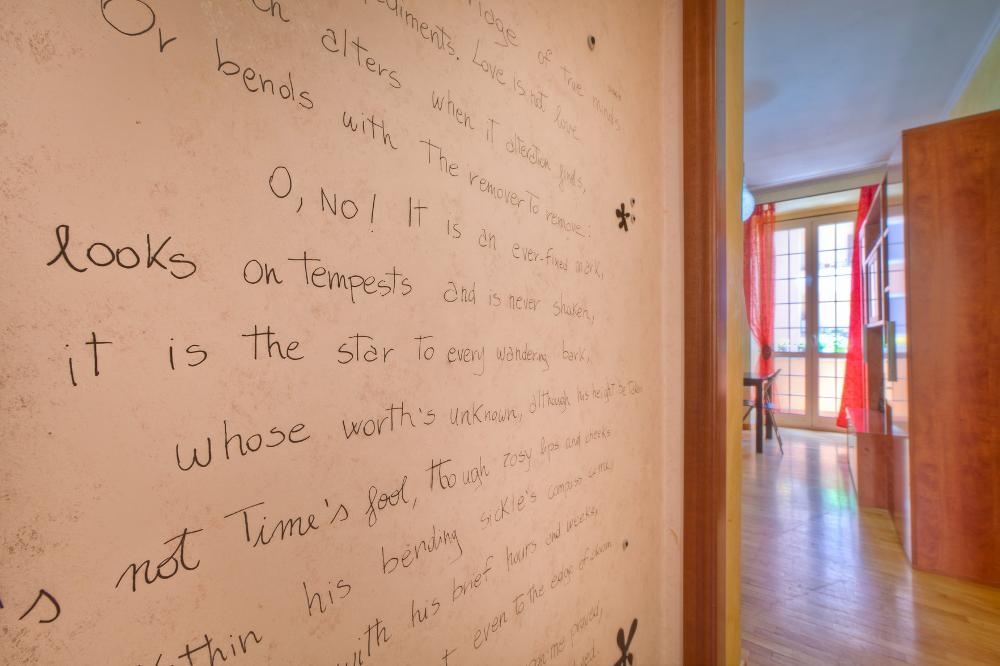 ridge of true minds
ediments. Love is not love
ch alters when it alteration finds,
Or bends with the remover to remove:
O, No! It is an ever-fixed mark,
looks on tempests and is never shaken,
it is the star to every wandering bark,
whose worth's unknown, although his height be taken
s not Time's fool, though rosy lips and cheeks
thin his bending sickle's compass come,
with his brief hours and weeks,
t even to the edge of doom
me proved,